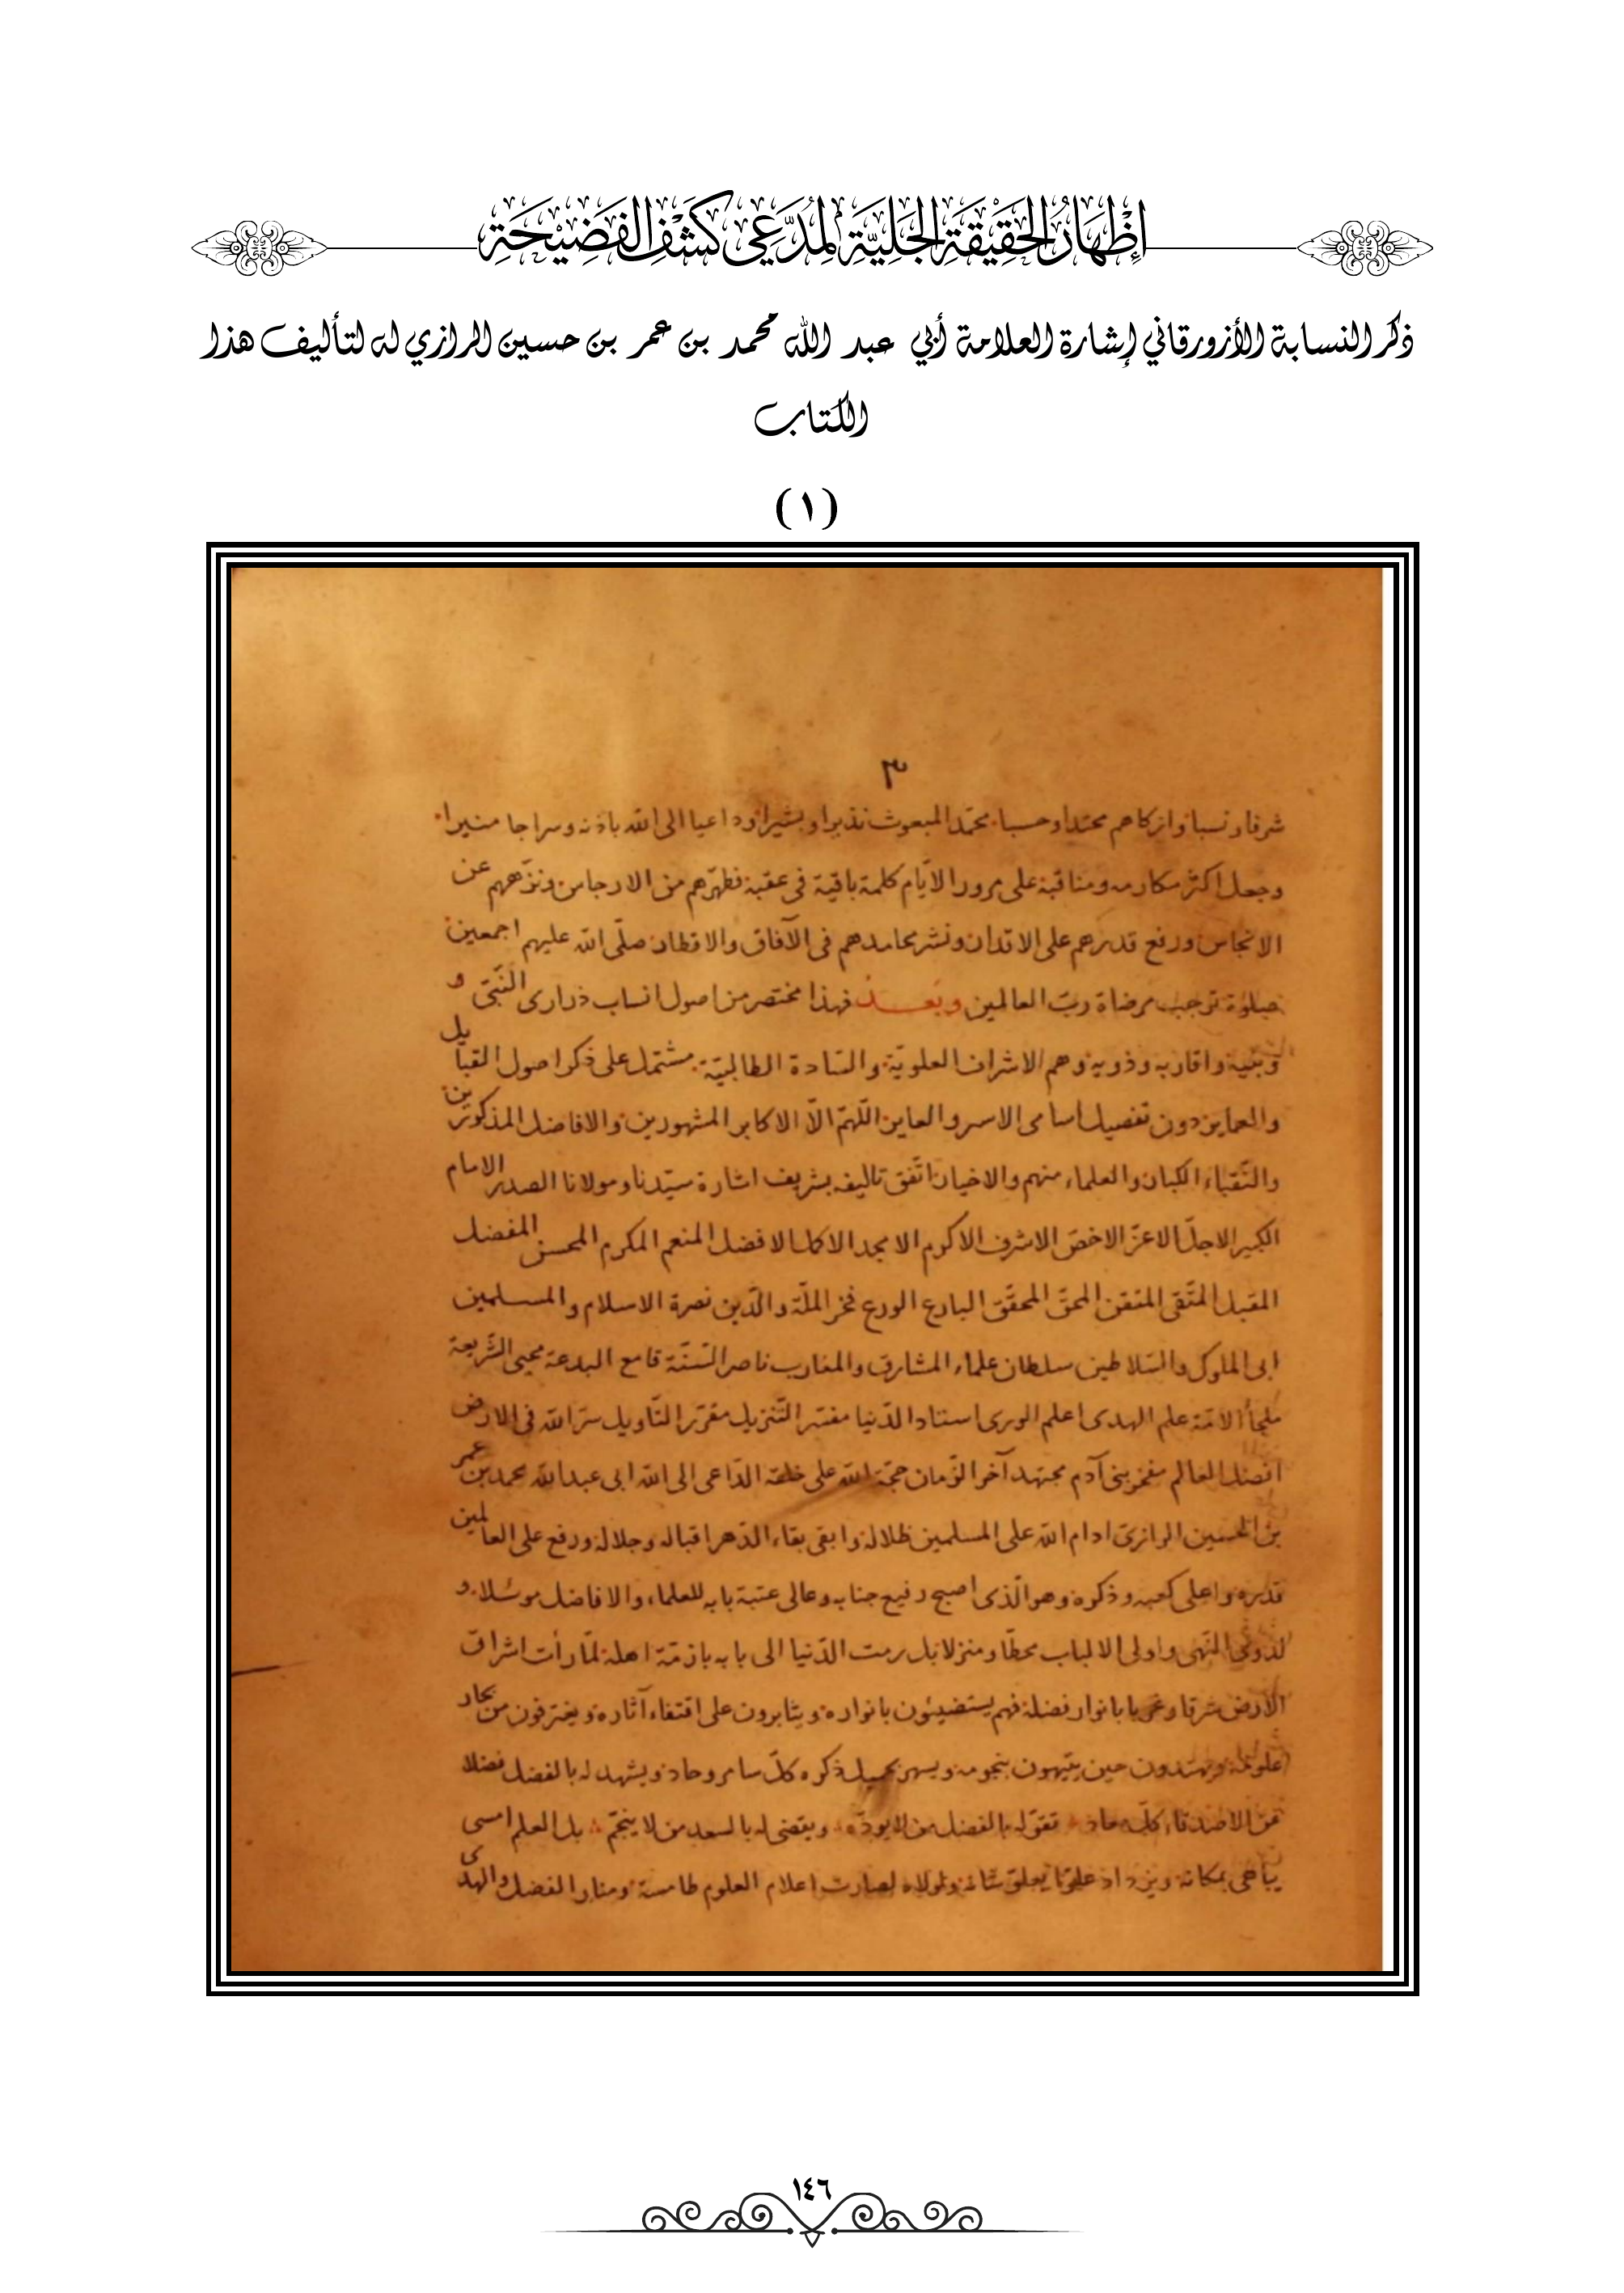 إِظْهَارُ الحَقِيْقَةِ الجَلِيَّةِ لِمُدَّعِي كَشْفِ الفَضِيْحَةِ
ذكر النسابة الأزورقاني إشارة العلامة أبي عبد الله محمد بن عمر بن حسين الرازي له لتأليف هذا
الكتاب
(١)
٣
شرفا ونسبا وازكاهم محتدا وحسبا محمّد المبعوث نذيرا وبشيرا وداعيا الى الله باذنه وسراجا منيرا
وجعل اكثر مكارمه ومناقبه على مرور الايّام كلمة باقية فى عقبه فطهّرهم من الارجاس ونزّههم عن
الانجاس ورفع قدرهم على الاقدار ونشر محامدهم فى الآفاق والاقطار صلّى الله عليهم اجمعين
صلوة توجب مرضاة ربّ العالمين وبعد فهذا مختصر من اصول انساب ذرارى النّبىّ و
وبنيه واقاربه وذويه وهم الاشراف العلويّة والسّادة الطالبيّة مشتمل على ذكر اصول القبايل
والعماير دون تفصيل اسامى الاسر والعاير اللّهمّ الّا الاكابر المشهورين والافاضل المذكورين
والنّقباء الكبار والعلماء منهم والاخيار اتّفق تاليفه بشريف اشارة سيّدنا ومولانا الصدر الامام
الكبير الاجلّ الاعزّ الاخصّ الاشرف الاكرم الامجد الاكمل الافضل المنعم المكرم المحسن المفضل
المقبل المتّقى المتقن المحقّ المحقّق البارع الورع فخر الملّة والدّين نصرة الاسلام والمسلمين
ابى الملوك والسّلاطين سلطان علماء المشارق والمغارب ناصر السّنّة قامع البدعة محيى الشّريعة
ملجأ الامّة علم الهدى اعلم الورى استاد الدّنيا مفسّر التّنزيل مقرّر التّاويل سرّ الله فى الارض
افضل العالم مفخر بنى آدم مجتهد آخر الزّمان حجّة الله على خلقه الدّاعى الى الله ابى عبد الله محمد بن عمر
بن الحسين الرازىّ ادام الله على المسلمين ظلاله وابقى بقاء الدّهر اقباله وجلاله ورفع على العالمين
قدره واعلى كعبه وذكره وهو الّذى اصبح رفيع جنابه وعالى عتبة بابه للعلماء والافاضل موئلا و
لذوى النّهى واولى الالباب محطّا ومنزلا بل رمت الدّنيا الى بابه بازمّة اهله لمّا رأت اشراق
الارض شرقا وغربا بانوار فضله فهم يستضيئون بانواره ويثابرون على اقتفاء آثاره ويغترفون من بحار
علومه ويهتدون حين يتيهون بنجومه ويسهر بجميل ذكره كلّ سامر وحاد ويشهد له بالفضل فضلا
عن الاصدقاء كلّ معاد تقوّله بالفضل من لا يودّه ويقضى له بالسعد من لا ينجّم بل العلم امسى
يباهى بمكانه ويزداد علوّا بعلوّ شانه ولولاه لصارت اعلام العلوم طامسة ومنار الفضل والهدى
١٤٦